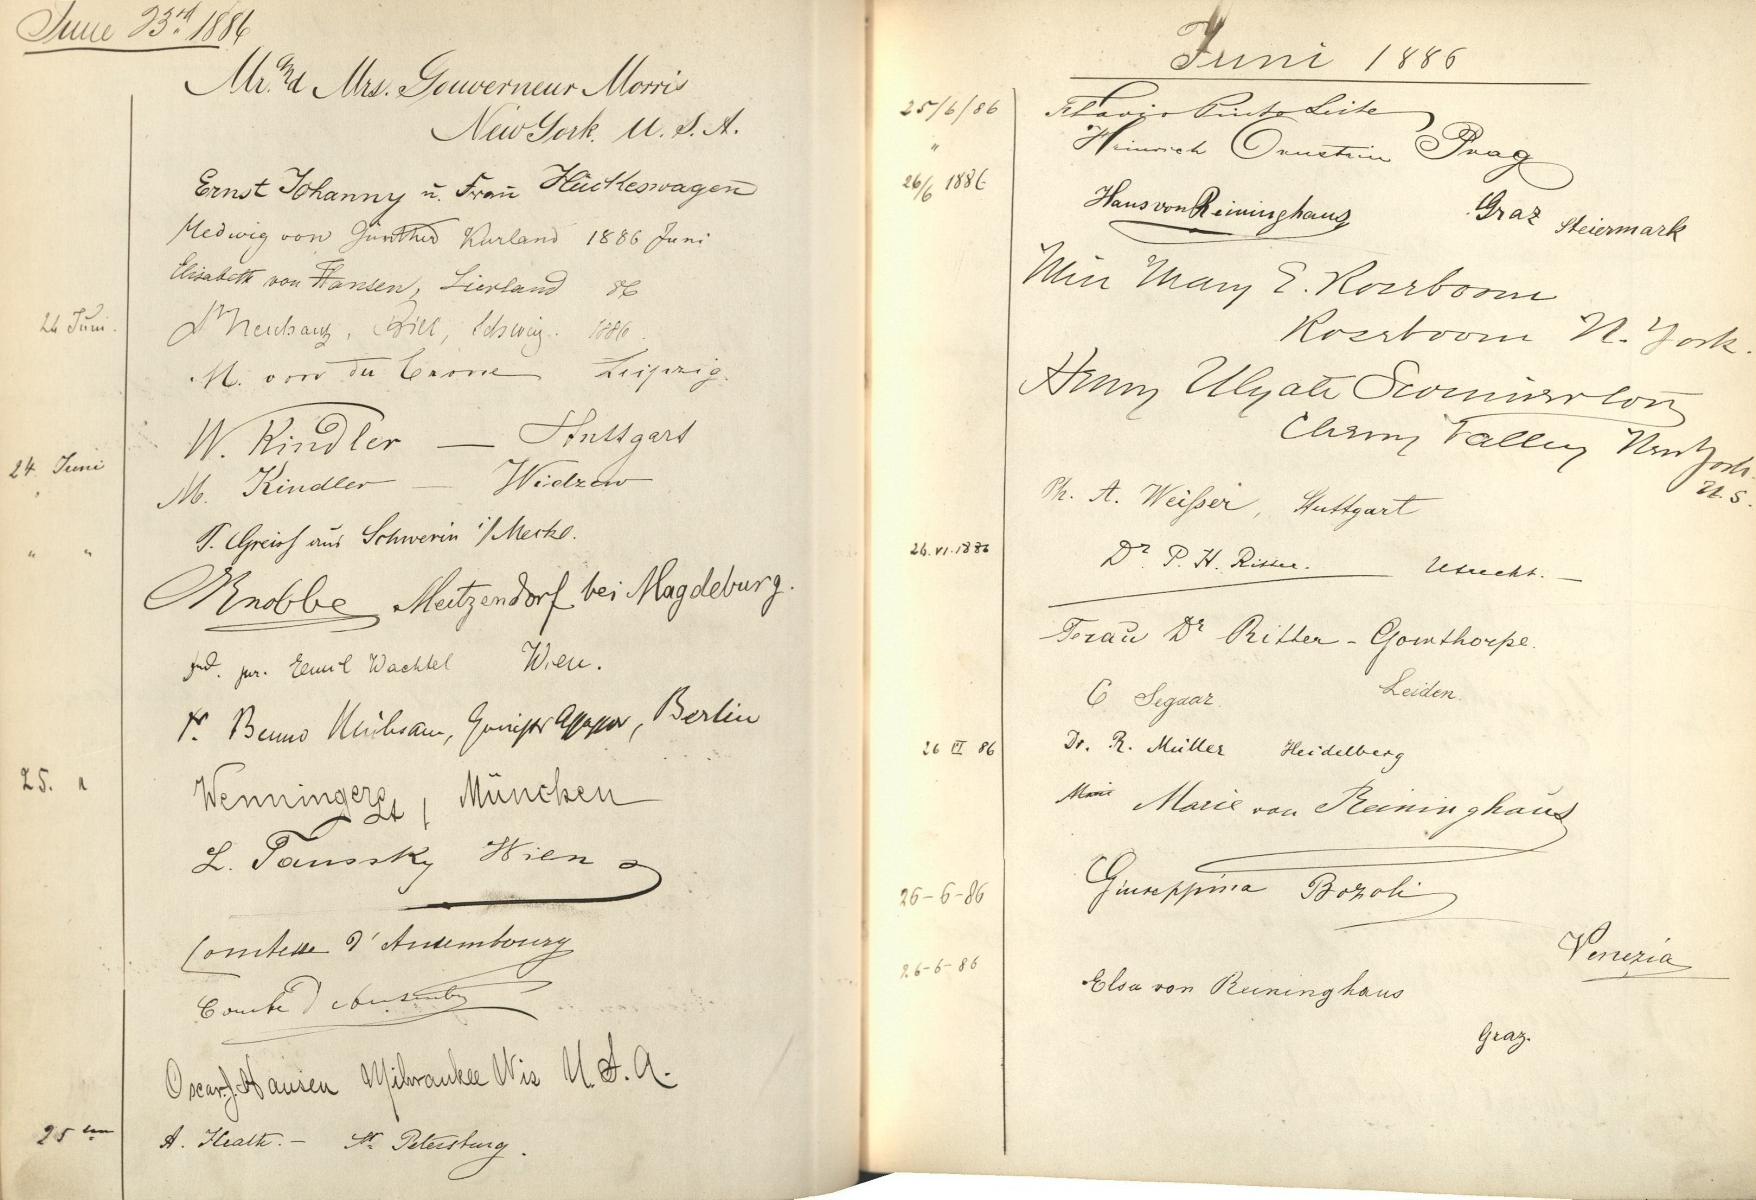 June 23rd 1886
Mr. and Mrs. Gouverneur Morris
New York. U. S. A.
Ernst Johanny u. Frau Hückeswagen
Hedwig von Günther Kurland 1886 Juni
Elisabeth von Hansen, Livland 86
24 Juni. 1886.
M. von der Crone Leipzig.
W. Kindler — Stuttgart
24. Juni
M. Kindler — Widzew
" " aus Schwerin i/Meckl.
Knobbe Meitzendorf bei Magdeburg.
jur. Emil Wachtel Wien.
Dr. Benno Mühsam, Berlin
25. "
Wenninger, München
L. Taussky Wien
Comtesse d'Ansembourg
Comte d'Ansembourg
Oscar J. Hansen Milwaukee Wis U. S. A.
25 A. Heath. — St. Petersburg.
Juni 1886
25/6/86 Flavio Pinto Leite
" Heinrich Ornstein Prag
26/6 1886
Hans von Reininghaus Graz Steiermark
Miss Mary E. Roseboom
Roseboom N. York.
Henry Ulyate
Cherry Valley New York.
U. S.
Ph. A. Weißer, Stuttgart
26.VI.1886 Dr P. H. Ritter. Utrecht. —
Frau Dr Ritter - Gowthorpe.
C Segaar Leiden.
26 VI 86 Dr. R. Müller Heidelberg
Marie Marie von Reininghaus
26-6-86 Giuseppina Bozoli
Venezia
26-6-86
Elsa von Reininghaus
Graz.